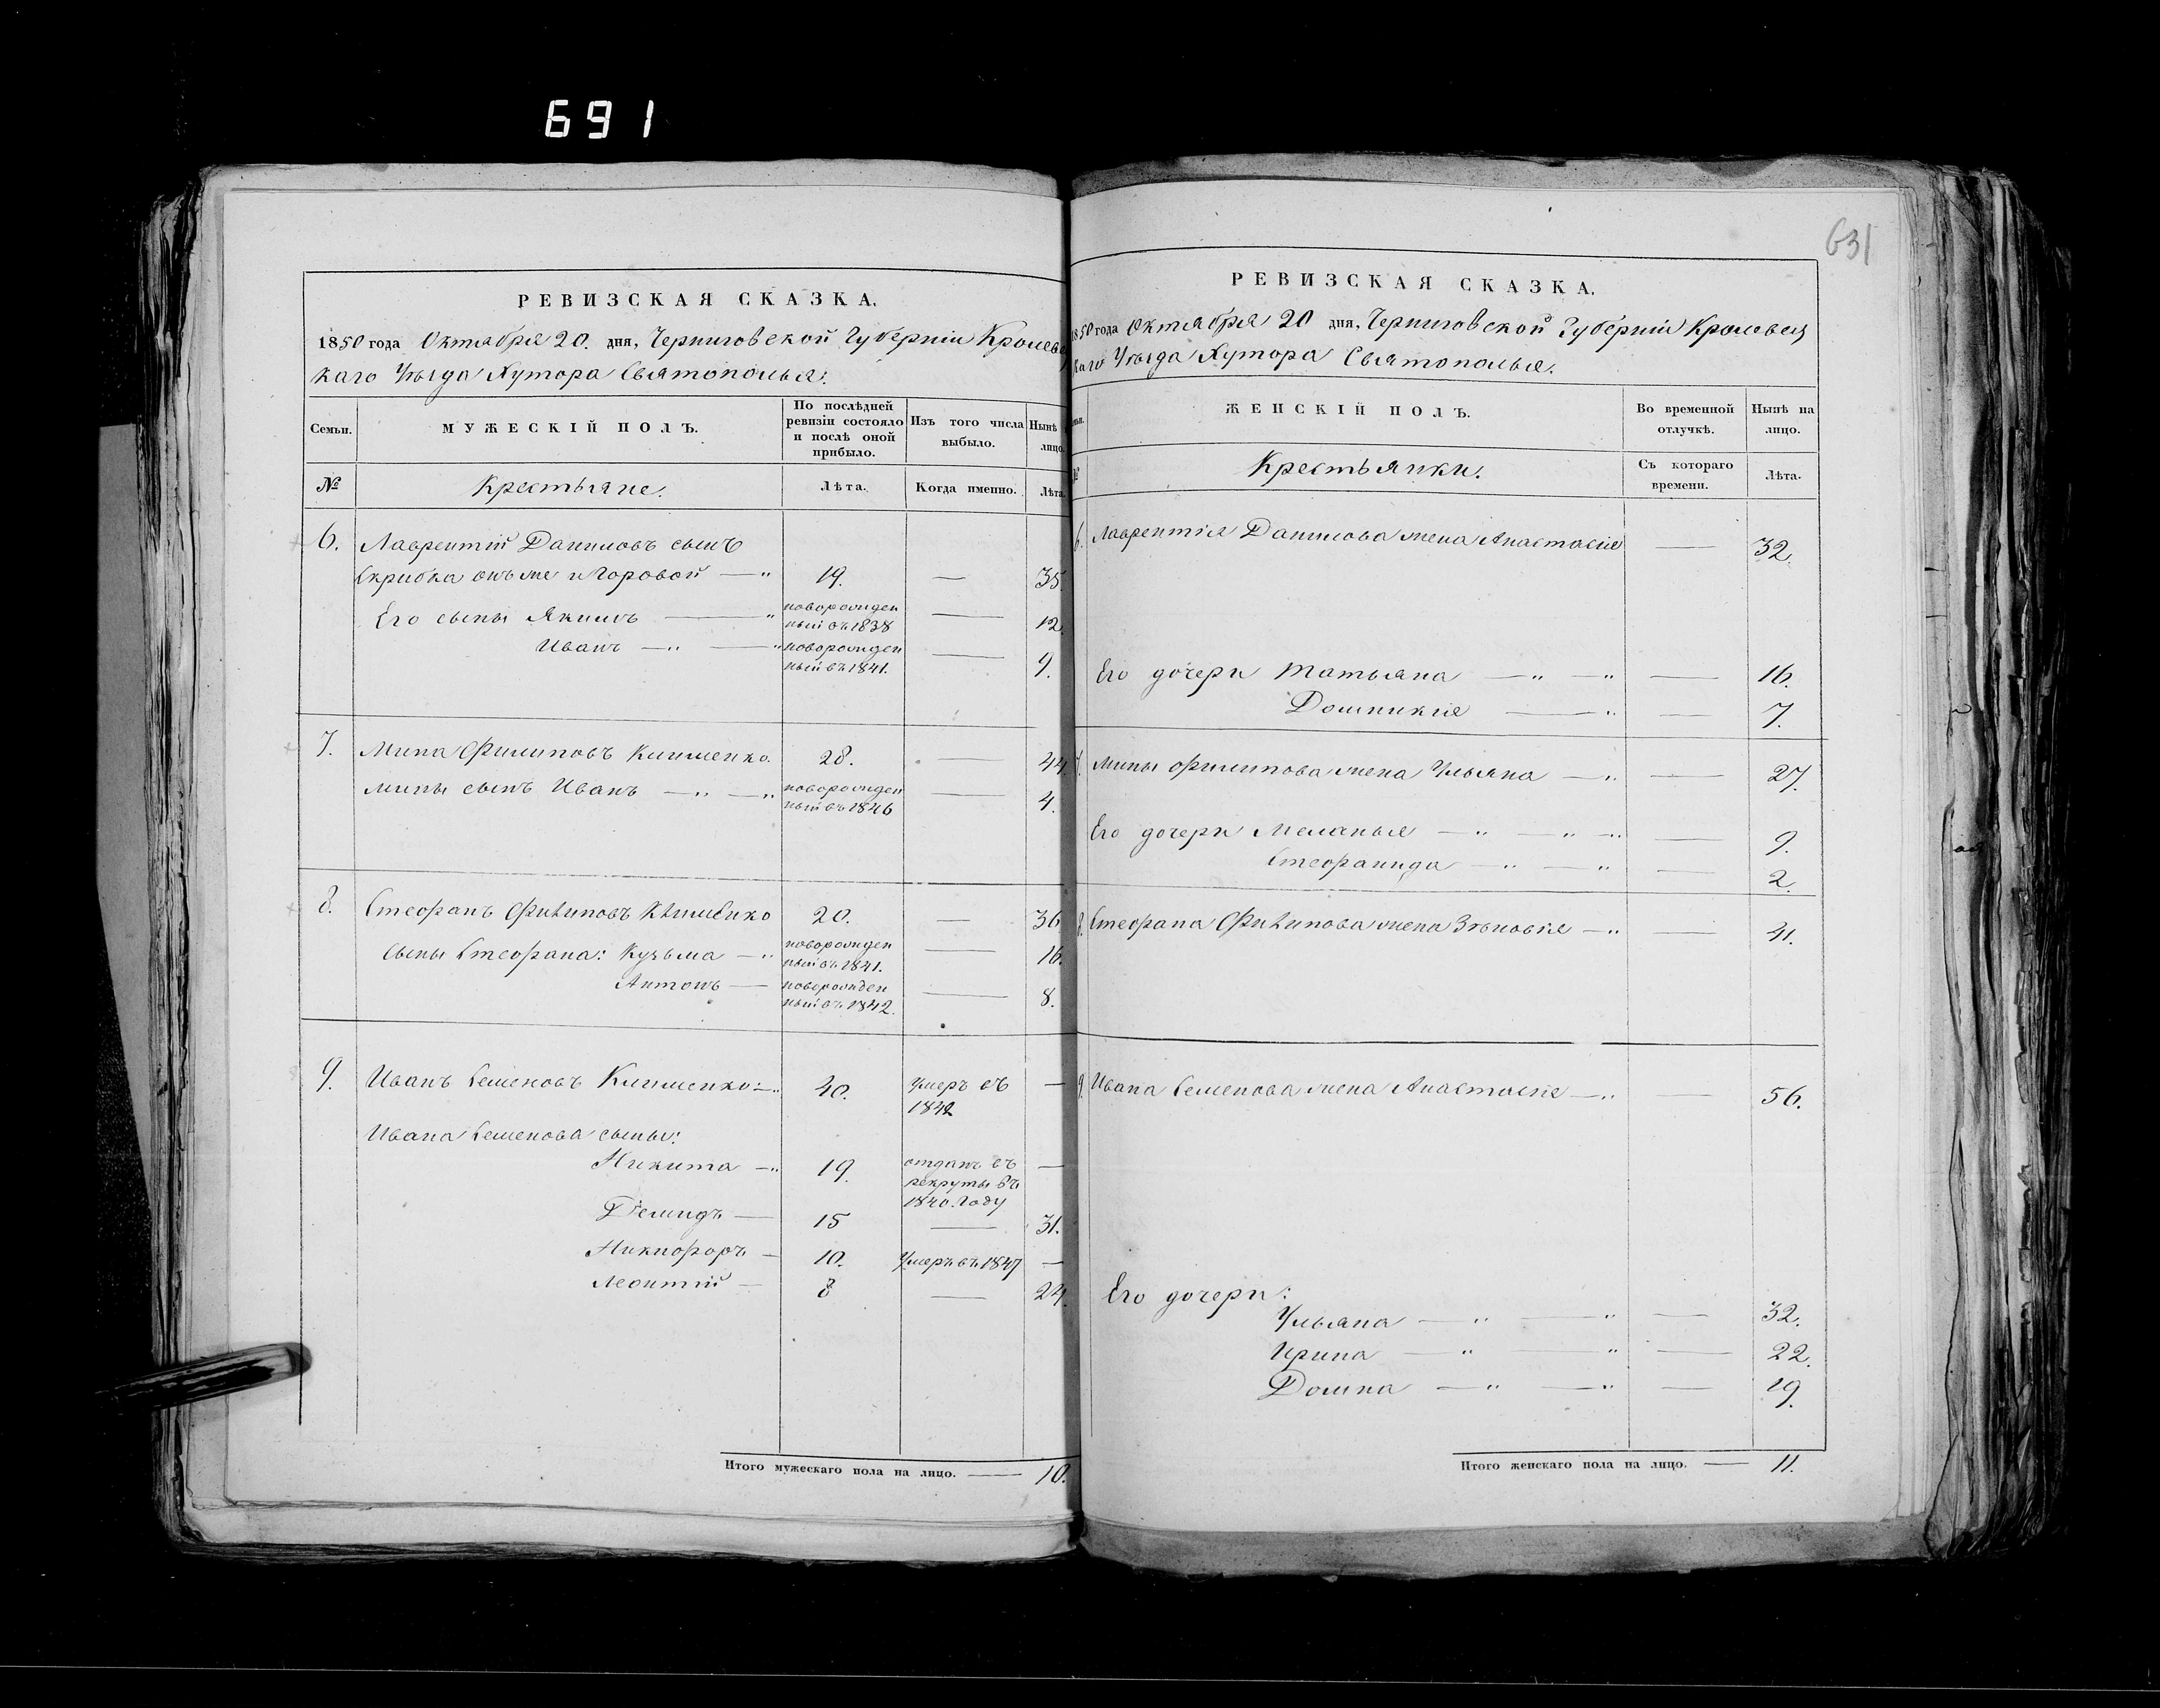 691
РЕВИЗСКАЯ СКАЗКА.
1850 года Октября 20. дня, Черниговской Губерніи Кролевец
каго Уѣзда Хутора Святополья:
Семьи.
МУЖЕСКІЙ ПОЛЪ.
По послѣдней ревизіи состояло и послѣ оной прибыло.
Изъ того числа выбыло.
Нынѣ лицо
№
Крестьяне.
Лѣта.
Когда именно.
Лѣта
6. Лаврентій Даниловъ сынъ
Скрибка онъ же и Горовой — " 19. — 35
Его сыны Якимъ — " новорожден ный въ 1838 — 12.
Иванъ — " — " новорожден ный въ 1841. — 9.
7. Мина Филиповъ Клименко. 28. — 44.
Мины сынъ Иванъ — " — " новорожден ный въ 1846 — 4.
8. Стефанъ Филиповъ Клименко 20. — 36
Сыны Стефана: Кузьма — " новорожден ный въ 1841. — 16.
Антонъ — новорожден ный въ 1842. — 8.
9. Иванъ Семеновъ Клименко: — " 40. Умеръ въ 1842 —
Ивана Семенова сыны:
Никита — " 19. отданъ въ рекруты въ 1840. Году —
Демидъ — 15 — 31.
Никифоръ — 10. Умеръ въ 1847 —
Леонтій — 8 — 24.
Итого мужескаго пола на лицо. — 10.
631
РЕВИЗСКАЯ СКАЗКА.
1850 года Октября 20 дня, Черниговской Губерніи Кролевец
каго Уѣзда Хутора Святополья.
ЖЕНСКІЙ ПОЛЪ.
Во временной отлучкѣ.
Нынѣ на лицо.
№
Крестьянки.
Съ котораго времени.
Лѣта.
6. Лаврентія Данилова жена Анастасія — 32.
Его дочери Татьяна — " — " — 16.
Домникія — " — 7.
7. Мины Филипова жена Ульяна — " — 27.
Его дочери Меланья — " — " — " — 9.
Стефанида — " — " — 2.
8. Стефана Филипова жена Зѣновія — " — 41.
9. Ивана Семенова жена Анастасія — " — 56.
Его дочери:
Ульяна — " — " — 32.
Ирина — " — " — 22.
Домна — " — " — 19.
Итого женскаго пола на лицо. — 11.